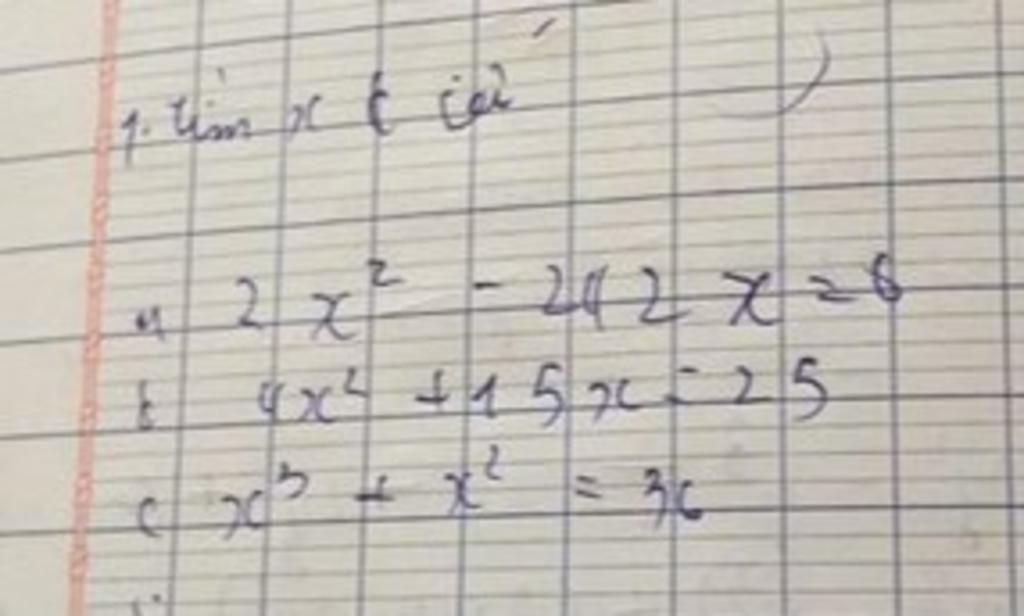 1. tìm x
a, 2x² - 242x = 6
b 4x² + 15x = 25
c x³ + x² = 36